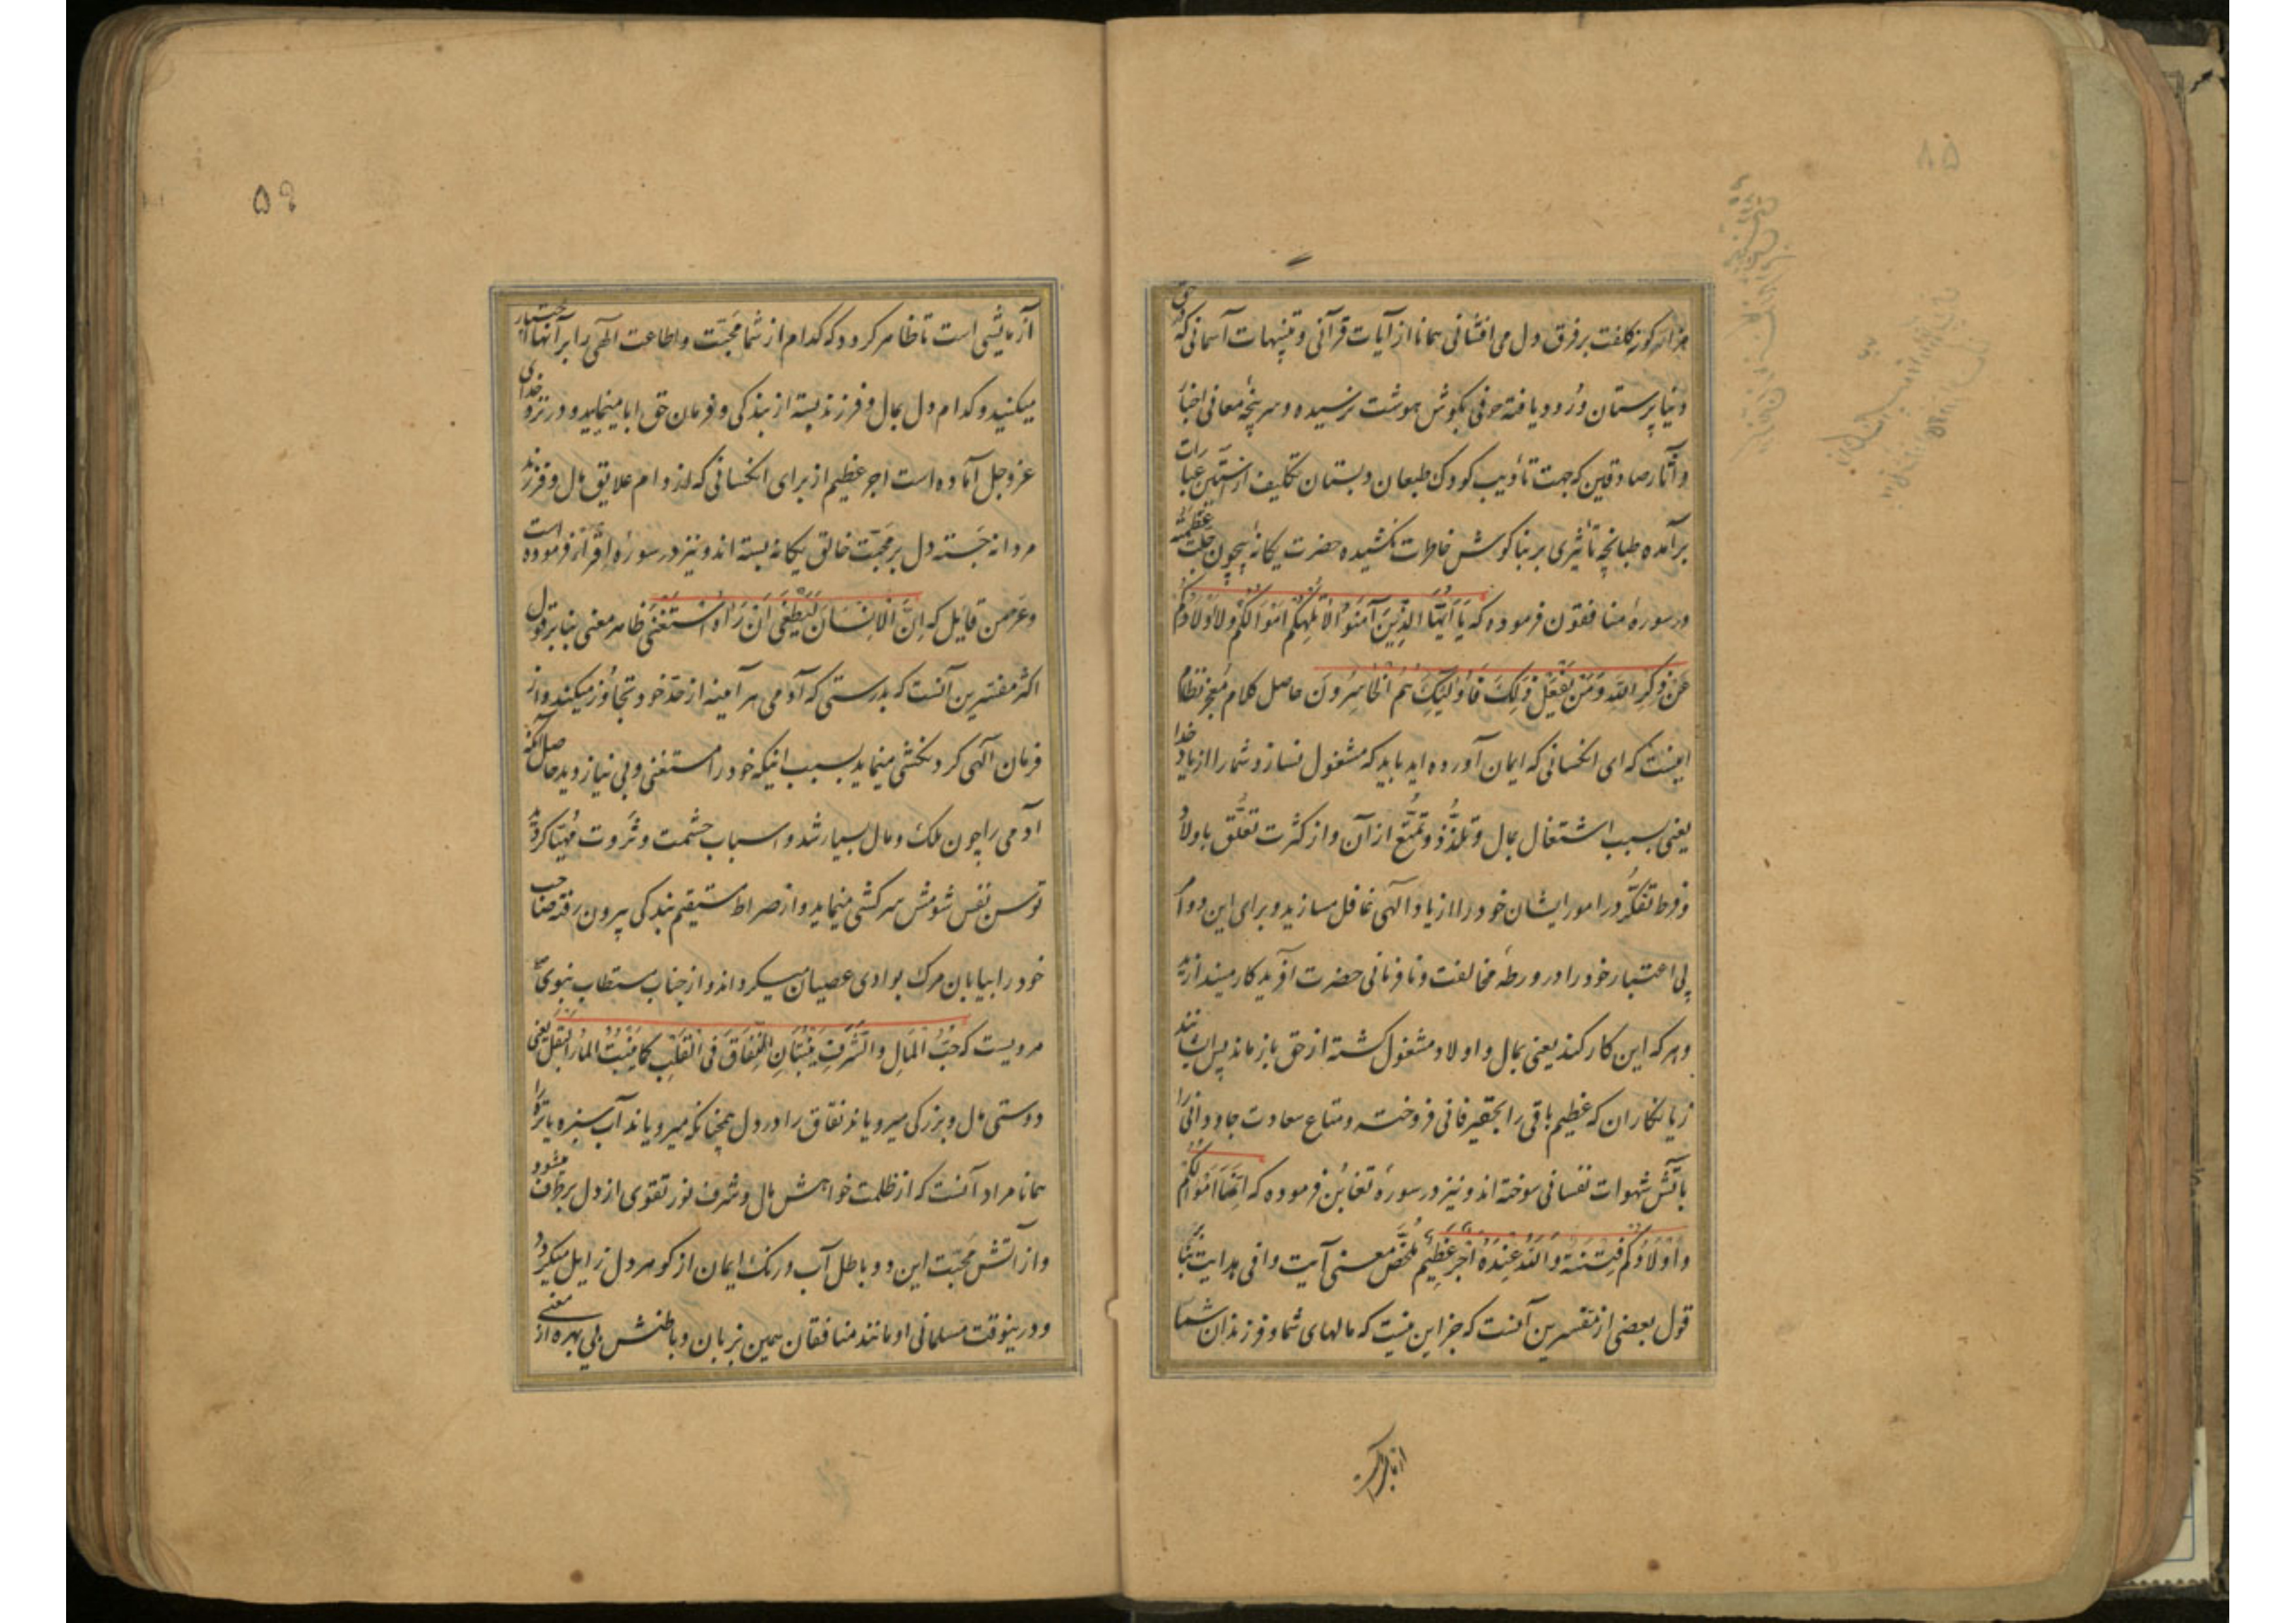 ۸۵
هزار گونه کلفت بر فرق دل می افشانی همانا از آیات قرآنی و تنبیهات آسمانی که در حق
دنیا پرستان ورود یافته حرفی بگوش هوشت نرسیده و سرپنجه معانی اخبار
و آثار صادقین که جهت تأدیب کودک طبعان دبستان تکلیف از آستین عبارات
برآمده طپانچه تأثیری بر بناگوش خاطرت نکشیده حضرت یگانه بیچون جلت عظمته
در سورهٔ منافقون فرموده که یَا أَیُّهَا الَّذِینَ آمَنُوا لَا تُلْهِکُمْ أَمْوَالُکُمْ وَلَا أَوْلَادُکُمْ
عَنْ ذِکْرِ اللَّهِ وَمَنْ یَفْعَلْ ذَلِکَ فَأُولَئِکَ هُمُ الْخَاسِرُونَ حاصل کلام معجز نظام
اینست که ای انکسانی که ایمان آورده اید باید که مشغول نسازد شما را از یاد خدا
یعنی بسبب اشتغال بمال و تلذّذ و تمتّع از آن و از کثرت تعلّق باولاد
و فرط تفکّر در امور ایشان خود را از یاد الهی غافل مسازید و برای این دو امر
بی اعتبار خود را در ورطه مخالفت و نافرمانی حضرت آفریدکار میندازید
و هر که این کار کند یعنی بمال و اولاد مشغول کشته از حق باز ماند پس ایشانند
زیانکاران که عظیم باقی را بحقیر فانی فروخته و متاع سعادت جاودانی را
بآتش شهوات نفسانی سوخته اند و نیز در سورهٔ تغابن فرموده که إِنَّمَا أَمْوَالُکُمْ
وَأَوْلَادُکُمْ فِتْنَةٌ وَاللَّهُ عِنْدَهُ أَجْرٌ عَظِیمٌ ملخّص معنی آیت وافی هدایت بنا بر
قول بعضی از مفسرین آنست که جز این نیست که مالهای شما و فرزندان شما
۵۹
آزمایشی است تا ظاهر کردد که کدام از شما محبّت و اطاعت الهی را بر آنها اختیار
میکنید و کدام دل بمال و فرزند بسته از بندکی و فرمان حق ابا مینمایید و در نزد خدای
عزوجل آماده است اجر عظیم از برای انکسانی که از دام علایق مال و فرزند
مردانه جسته دل بر محبّت خالق یکانه بسته اند و نیز در سورهٔ اقرأ فرموده است
وعز من قایل که إِنَّ الْإِنْسَانَ لَیَطْغَى أَنْ رَآهُ اسْتَغْنَى ظاهر معنی بنا بر قول
اکثر مفسّرین آنست که بدرستی که آدمی هر آینه از حدّ خود تجاوز میکند و از
فرمان الهی کردنکشی مینماید بسبب اینکه خود را مستغنی و بی نیاز دید حاصل آنکه
آدمی را چون ملک و مال بسیار شد و اسباب حشمت و ثروت مهیّا کردید
توسن نفس شومش سرکشی مینماید و از صراط مستقیم بندکی بیرون رفته صاحب
خود را بیابان مرک بوادی عصیان میکرداند و از جناب مستطاب نبوی ص
مرویست که حُبُّ الْمَالِ وَالشَّرَفِ یُنْبِتَانِ النِّفَاقَ فِی الْقَلْبِ کَمَا یُنْبِتُ الْمَاءُ الْبَقْلَ یعنی
دوستی مال و بزرکی میرویاند نفاق را در دل همچنانکه میرویاند آب سبزه یا تره را
همانا مراد آنست که از ظلمت خواهش مال و شرف نور تقوی از دل برطرف میشود
و از آتش محبّت این دو باطل آب و رنک ایمان از کوهر دل زایل میکردد
و درینوقت مسلمانی او مانند منافقان همین بزبان و باطنش بی بهره از معنی